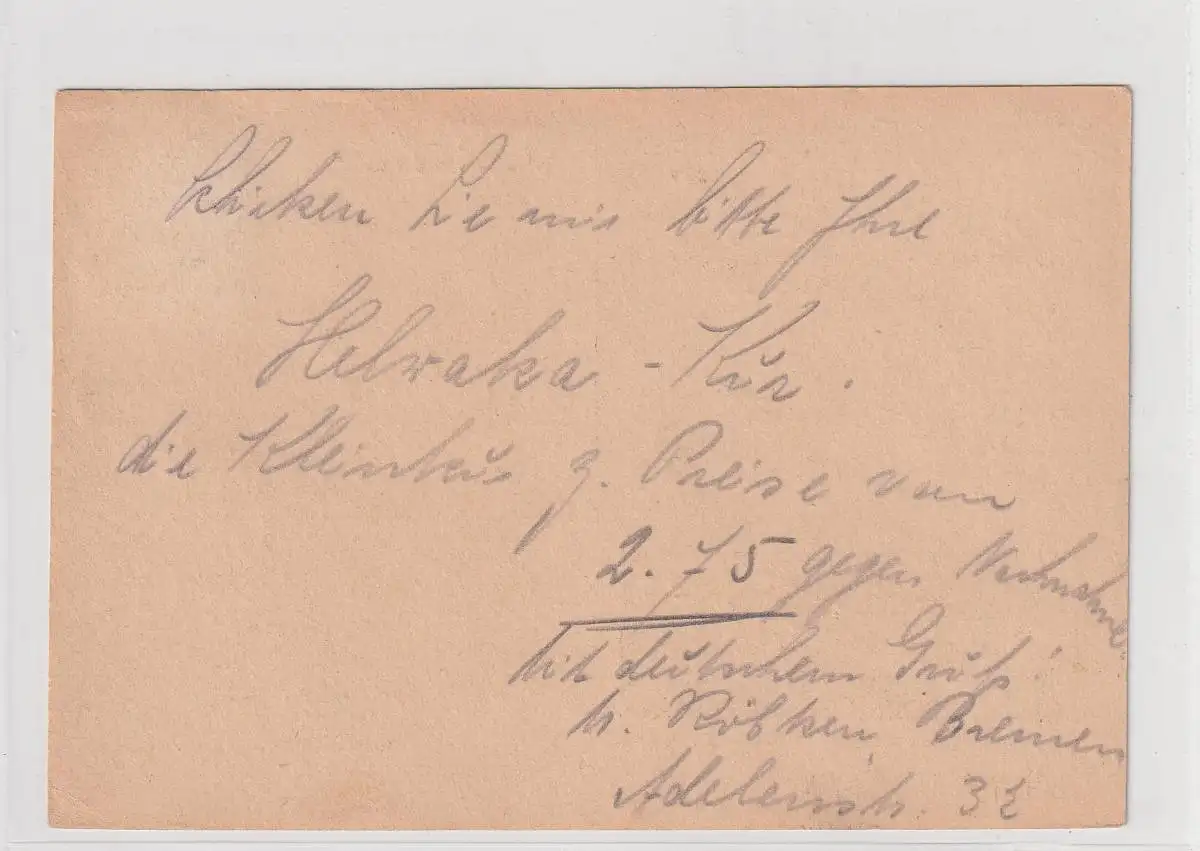 Schicken Sie mir bitte Ihre
Helwaka - Kur.
die Kleinkur z. Preise von
2.75 gegen Nachnahme.
Mit deutschem Gruß!
Bremen
Adelenstr. 32